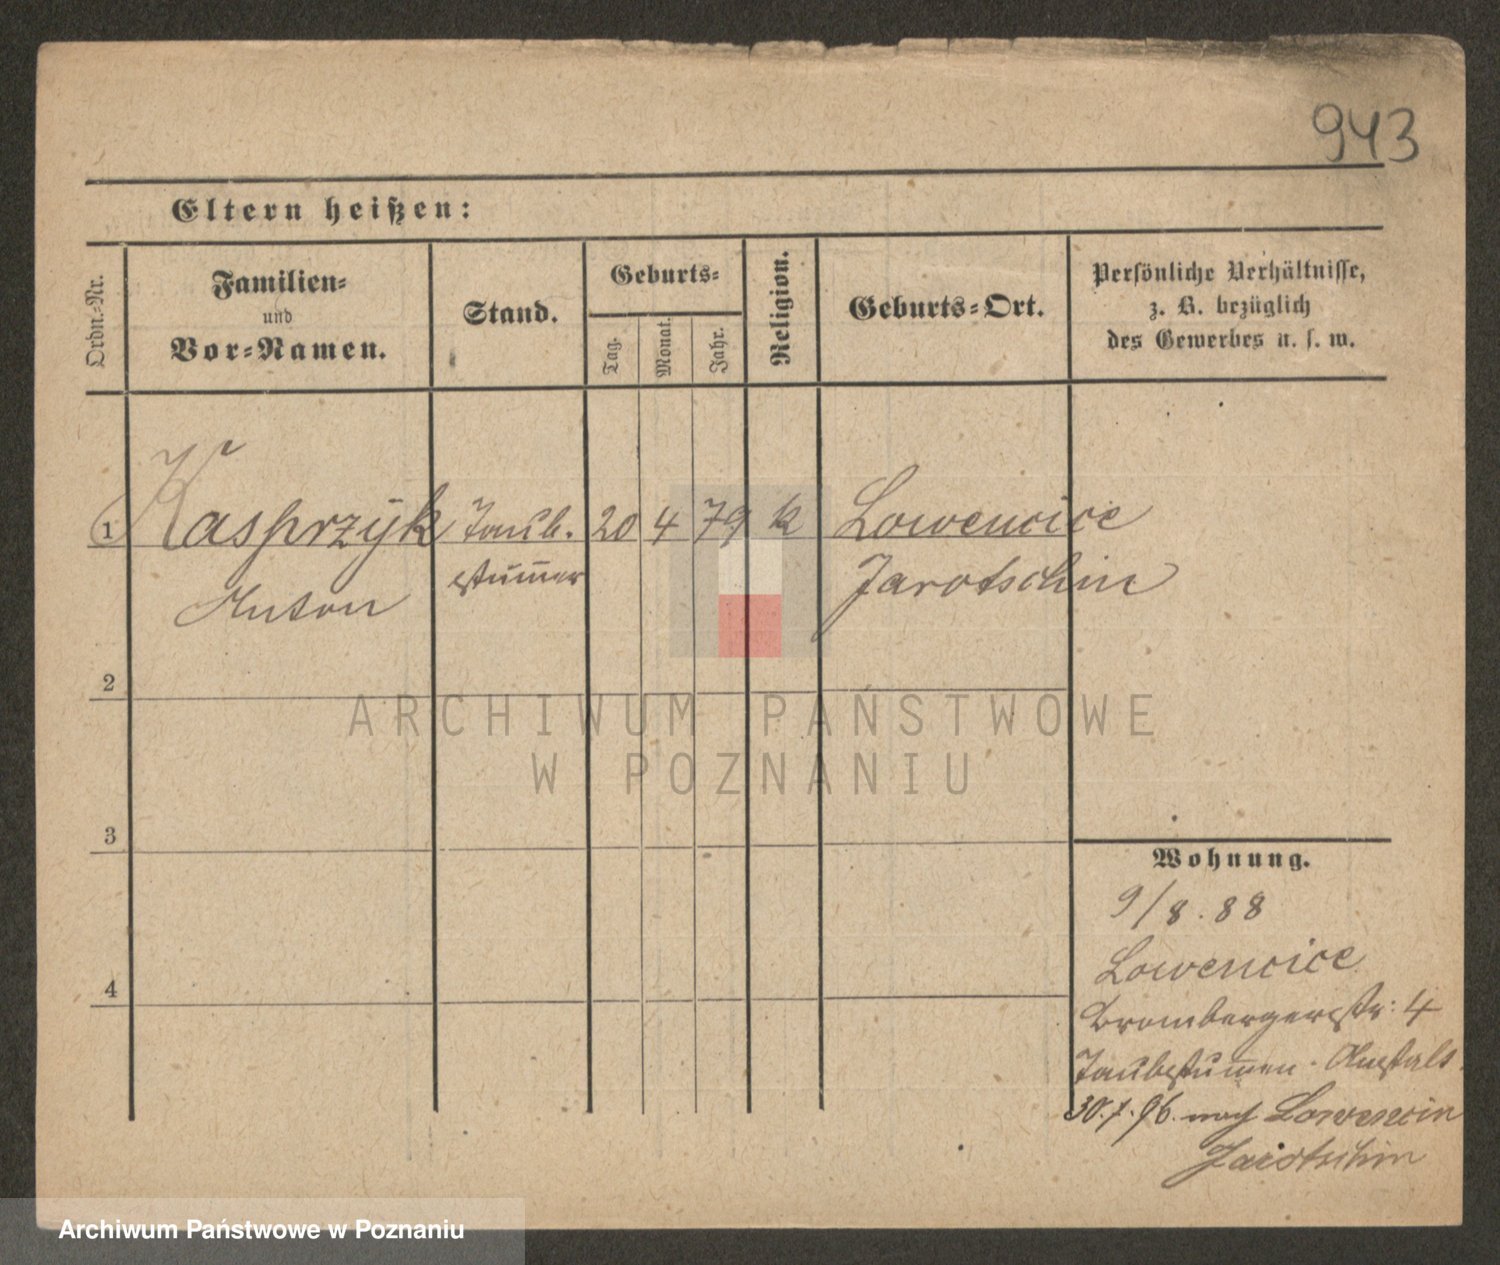 943
Eltern heißen:
Ordn.-Nr.
Familien-
und
Vor-Namen.
Stand.
Geburts-
Tag.
Monat.
Jahr.
Religion.
Geburts-Ort.
Persönliche Verhältnisse,
z. B. bezüglich
des Gewerbes u. s. w.
1 Kasprzyk Taub. 20 4 79 k Lowencice
Anton stum̅er Jarotschin
2
3
4
ARCHIWUM PAŃSTWOWE
W POZNANIU
Wohnung.
9/8.88
Lowencice
Brombergerstr: 4
Taubstum̅en-Anstalt.
30.7.96. nach Lowencin
Jarotschin
Archiwum Państwowe w Poznaniu